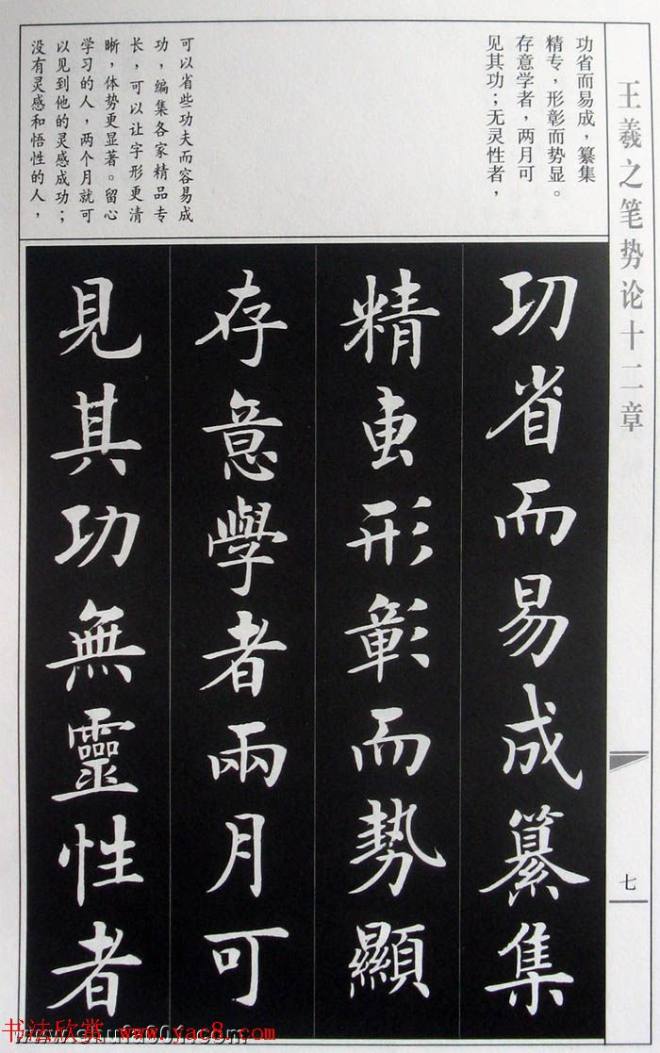 王羲之笔势论十二章
七
功省而易成，纂集
精专，形彰而势显。
存意学者，两月可
见其功；无灵性者，
可以省些功夫而容易成
功，编集各家精品专
长，可以让字形更清
晰，体势更显著。留心
学习的人，两个月就可
以见到他的灵感成功；
没有灵感和悟性的人，
功省而易成纂集
精専形彰而勢顯
存意學者兩月可
見其功無靈性者
书法欣赏 www.yac8.com